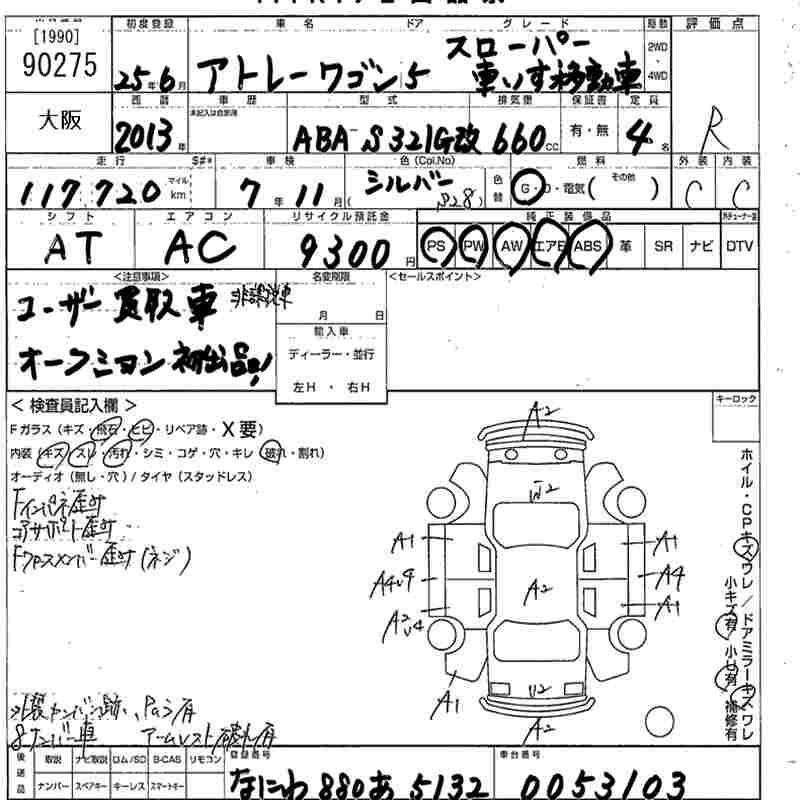 [1990]
90275
大阪
初度登録 車名 ドア グレード 駆動 評価点
25年6月 アトレーワゴン 5 スローパー 車いす移動車 2WD・4WD
R
西暦 車歴 型式 排気量 保証書 定員
2013年 未記入は自家用 ABA-S321G改 660cc 有・無 4名
走行 S#* 車検 色(Col.No) 燃料 外装 内装
117,720 マイル km 7年11月 シルバー (S28) 色替 G・D・電気( その他 ) C C
シフト エアコン リサイクル預託金 純正装備品
AT AC 9300円 PS PW AW エアB ABS 革 SR ナビ DTV
<注意事項> 名変期限 <セールスポイント>
ユーザー買取車 非課税車
月 日
輸入車
オークション初出品!
ディーラー・並行
左H・右H
<検査員記入欄> キーロック
Fガラス(キズ・飛石・ヒビ・リペア跡・X要)
内装(キズ・スレ・汚れ・シミ・コゲ・穴・キレ・破れ・割れ)
オーディオ(無し・穴)/タイヤ(スタッドレス)
Fインパネ歪ミ
コアサポート歪ミ
Fクロスメンバー歪ミ(ネジ)
A2
W2
A1 A1
A4U9 A2 A4
A2U4 A1
A1 U2
A2
ホイル・CPキズワレ/ドアミラーキズワレ
小キズ有 小U有 補修有
8ナンバー車 アームレスト破れ有
後送品 取説 ナビ取説 ロム/SD B-CAS リモコン 登録番号 車台番号
ナンバー スペアキー キーレス スマートキー なにわ 880 あ 5132 0053103